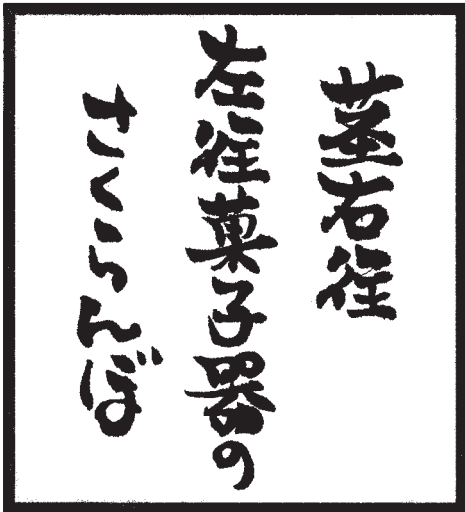 茎右往
左往菓子器の
さくらんぼ